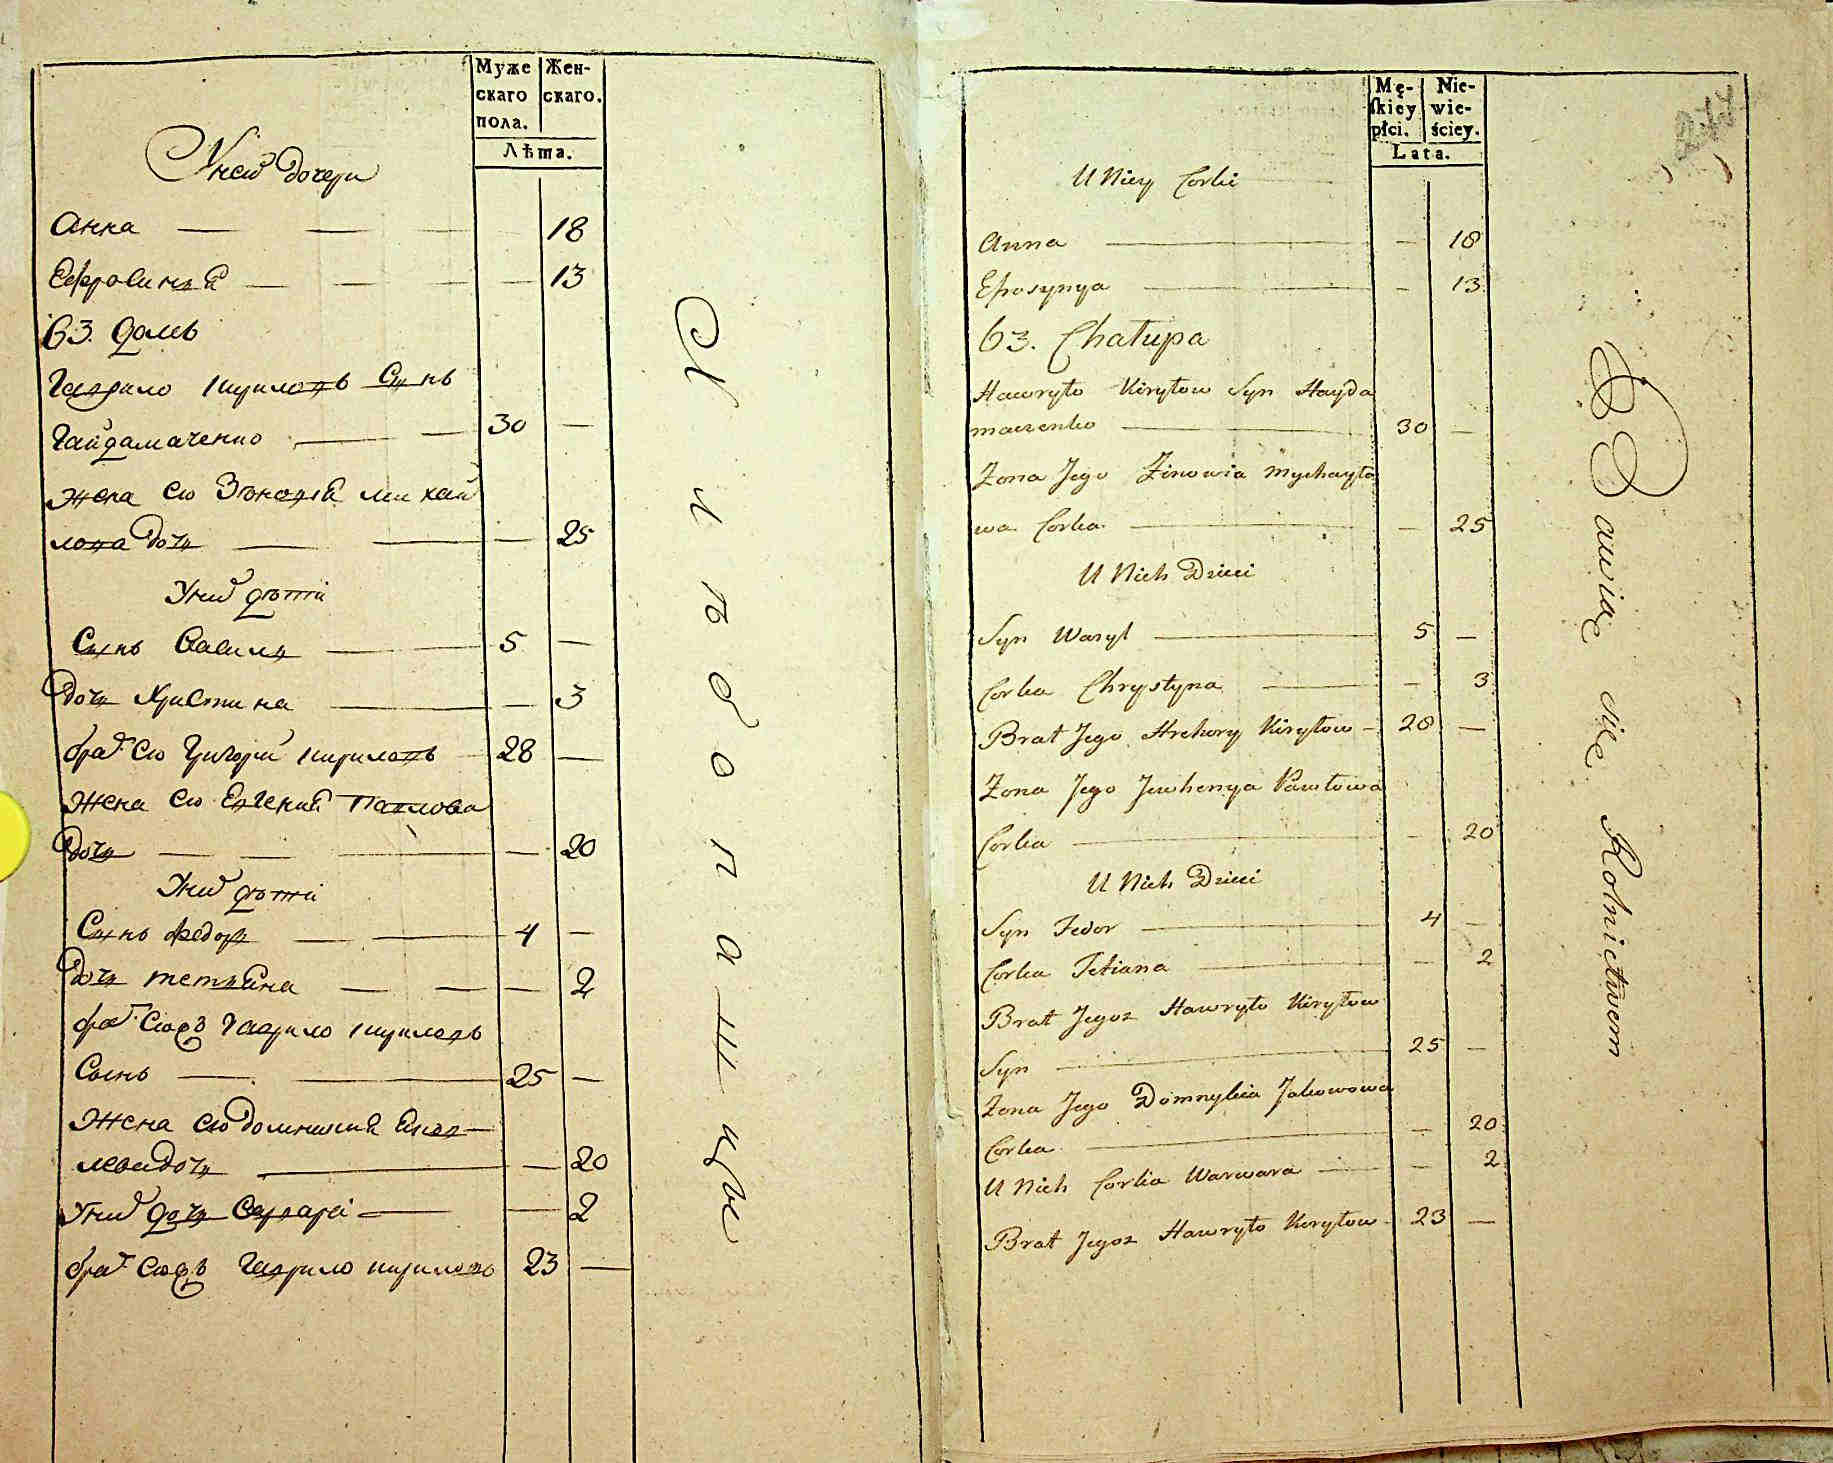 Муже Жен-
скаго скаго.
пола.
Лѣта.
Унеи дочери
Анна — — — 18
Ефросиния — — — — 13
63. домъ
Гаврило Кириловъ Сынъ
Гайдамаченко — — 30 —
Жена его Зѣновия михай
лова дочь — — — 25
Унихъ дѣти
Сынъ Василь — — 5 —
Дочь Христина — — 3
братъ его Григорій Кириловъ 28 —
Жена его Евгения Павлова
дочь — — — — 20
Унихъ дѣти
Сынъ Федоръ — — 4 —
Дочь тетяна — — — 2
братъ егожъ Гаврило Кириловъ
Сынъ — — 25 —
Жена его домникия Яков—
лева дочь — — 20
Унихъ дочь — — 2
братъ егожъ Гаврило кириловъ 23 —
Хлѣбопашцы
Mę- Nie-
skiey wie-
płci. ściey.
Lata.
U Niey Corki
Anna — — 18
Efrosynya — — 13
63. Chałupa
Hawryło Kiryłow Syn Hayda
maczenko — 30 —
Zona Jego Zinowia Mychayło
wa Corka — — 25
U Nich Dzieci
Syn Wasyl — 5 —
Corka Chrystyna — — 3
Brat Jego Hrehory Kiryłow — 28 —
Zona Jego Jewhenya Pawłowa
Corka — — 20
U Nich Dzieci
Syn Fedor — 4 —
Corka Tetiana — — 2
Brat Jegoz Hawryło Kiryłow
Syn — 25 —
Zona Jego Domnykia Jakowowa
Corka — — 20
U Nich Corka Warwara — — 2
Brat Jegoz Hawryło Kiryłow — 23 —
Bawią się Rolnictwem